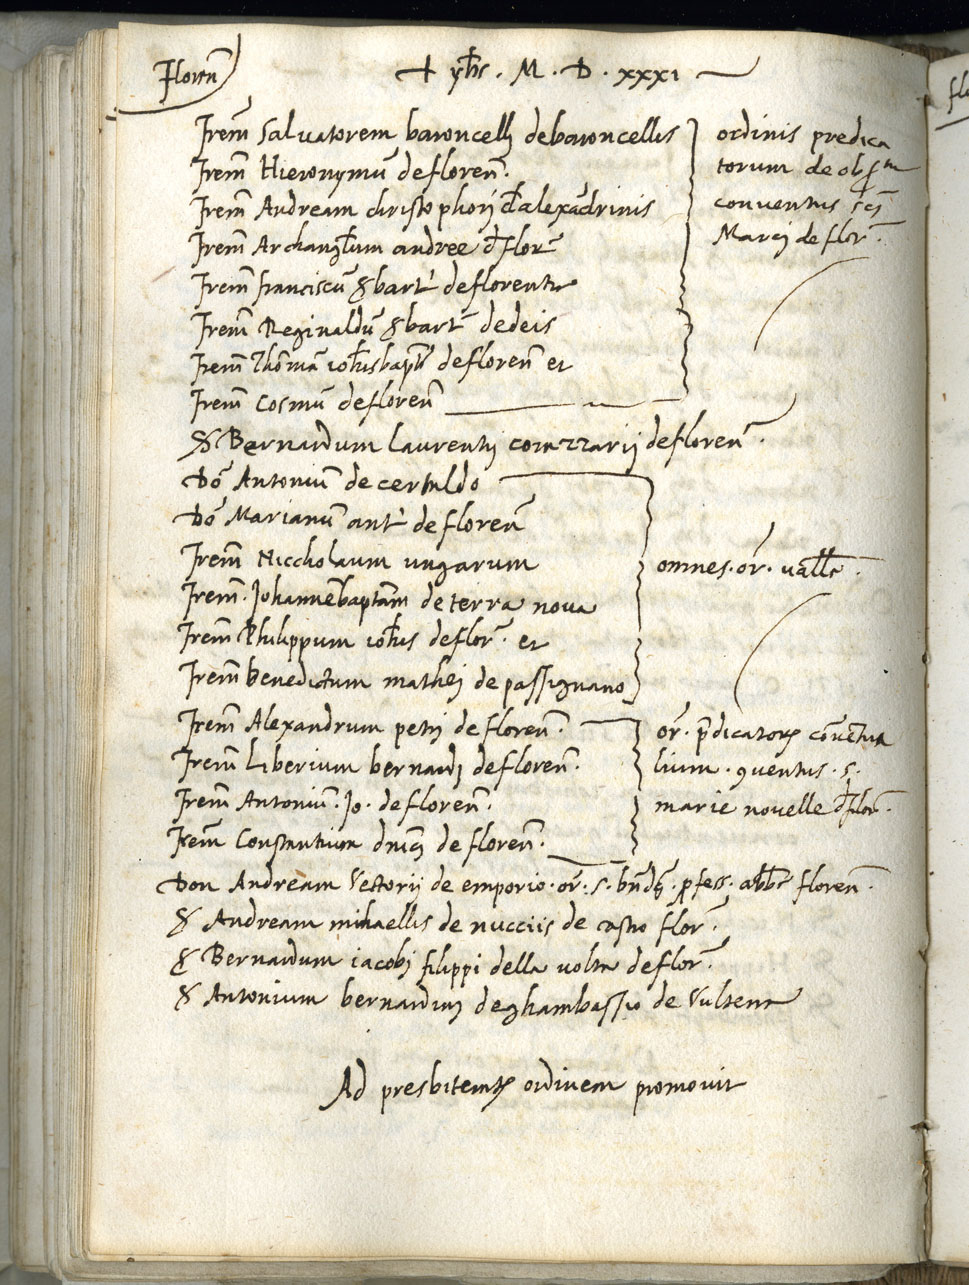 Floren̄
✝ yħs . M . D . xxxi
Frem̄ Salvatorem baroncellj debaroncellis
Frem̄ Hieronymū de floren̄.
Frem̄ Andream christophorj d̄ alexādrinis
Frem̄ Archang̅lum andree d̄ flor̄
Frem̄ franciscū & bart̄ de florentia
Frem̄ Reginaldū & bart̄ dedeis
Frem̄ Thōmā ioh̄isbapt̄ de floren̄ et
Frem̄ Cosmū de floren̄
ordinis predica
torum de obser
conventus sc̄j
Marcj de flor̄.
& Bernardum laurentij de floren̄.
Dō Antoniū de certaldo
Dō Marianū ant̄ de floren̄
Frem̄ Niccholaum ungarum
Frem̄. Johannēbaptam̄ de terra nova
Frem̄ Philippum ioh̄is de flor̄. et
Frem̄ benedictum mathej de passignano
omnes. or̄. vall̄e.
Frem̄ Alexandrum petrj de floren̄.
Frem̄ Liberium bernardj de floren̄.
Frem̄ Antoniū. Jo. de floren̄.
Frem̄ Constantium de floren̄.
or̄. p̄dicatorꝝ cōventua
lium. ꝯventus. s.
marie novelle d̄ flor̄.
Don Andream Vectorij de emporio. or̄. s. bn̄dj. ꝓfess. abb̄e floren̄.
& Andream mihaellis de nucciis de castro flor̄.
& Bernardum iacobj filippi della volta de flor̄.
& Antonium bernardinj deghambassio de Vulterra
Ad presbiteratꝫ ordinem promovit